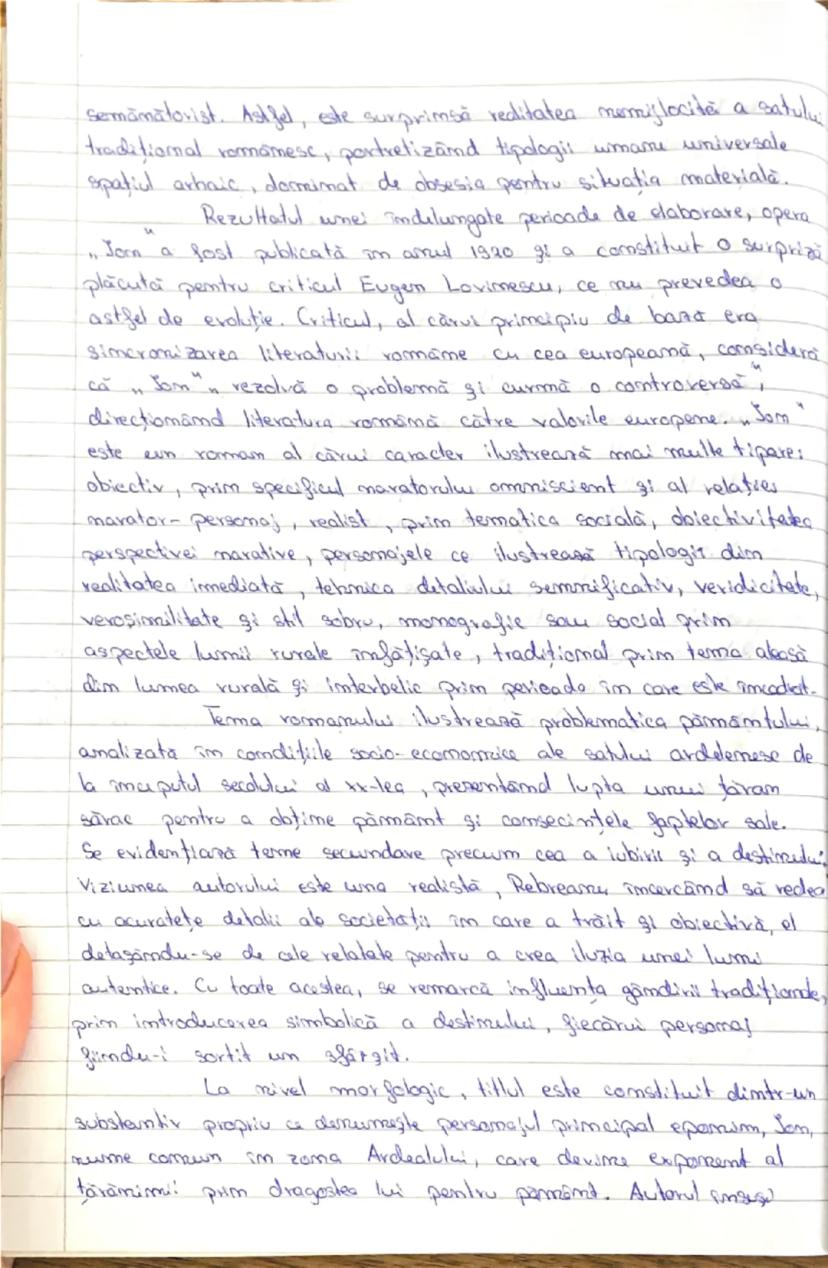 semănătorist. Astfel, este surprinsă realitatea nemijlocită a satului
tradițional românesc, portretizând tipologii umane universale
spațiul arhaic, dominat de obsesia pentru situația materială.
Rezultatul unei îndelungate perioade de elaborare, opera
„Ion" a fost publicată în anul 1920 și a constituit o surpriză
plăcută pentru criticul Eugen Lovinescu, ce nu prevedea o
astfel de evoluție. Criticul, al cărui principiu de bază era
sincronizarea literaturii române cu cea europeană, consideră
că „Ion" „rezolvă o problemă și curmă o controversă",
direcționând literatura română către valorile europene. „Ion"
este un roman al cărui caracter ilustrează mai multe tipare:
obiectiv, prin specificul naratorului omniscient și al relației
narator-personaj, realist, prin tematica socială, obiectivitatea
perspectivei narative, personajele ce ilustrează tipologii din
realitatea imediată, tehnica detaliului semnificativ, veridicitate,
verosimilitate și stil sobru, monografie sau social prin
aspectele lumii rurale înfățișate, tradițional prin tema aleasă
din lumea rurală și interbelic prin perioada în care este încadrat.
Tema romanului ilustrează problematica pământului,
analizată în condițiile socio-economice ale satului ardelenesc de
la începutul secolului al XX-lea, prezentând lupta unui țăran
sărac pentru a obține pământ și consecințele faptelor sale.
Se evidențiază teme secundare precum cea a iubirii și a destinului.
Viziunea autorului este una realistă, Rebreanu încercând să redea
cu acuratețe detalii ale societății în care a trăit și obiectivă, el
detașându-se de cele relatate pentru a crea iluzia unei lumi
autentice. Cu toate acestea, se remarcă influența gândirii tradiționale,
prin introducerea simbolică a destinului, fiecărui personaj
fiindu-i sortit un sfârșit.
La nivel morfologic, titlul este constituit dintr-un
substantiv propriu ce denumește personajul principal eponim, Ion,
nume comun în zona Ardealului, care devine exponent al
țărănimii prin dragostea lui pentru pământ. Autorul însuși